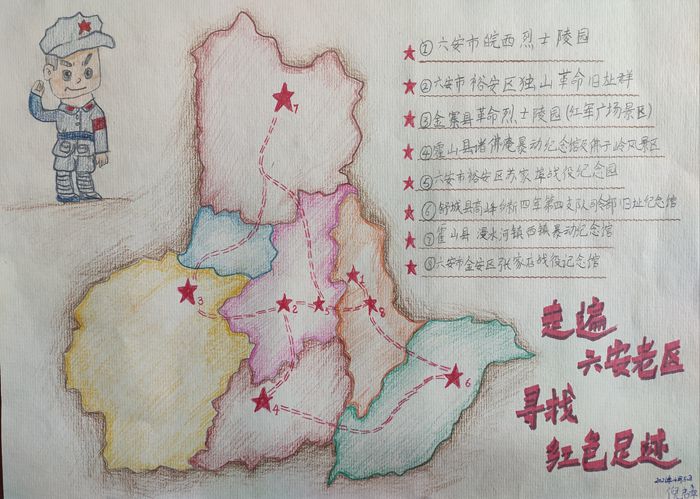 ①六安市皖西烈士陵园
②六安市裕安区独山革命旧址群
③金寨县革命烈士陵园(红军广场景区)
④霍山县诸佛庵暴动纪念馆及佛子岭风景区
⑤六安市裕安区苏家埠战役纪念园
⑥舒城县高峰乡新四军第四支队司令部旧址纪念馆
⑦霍山县漫水河镇西镇暴动纪念馆
⑧六安市金安区张家店战役纪念馆
7
3
2
5
1
8
4
6
走遍
六安老区
寻找
红色足迹